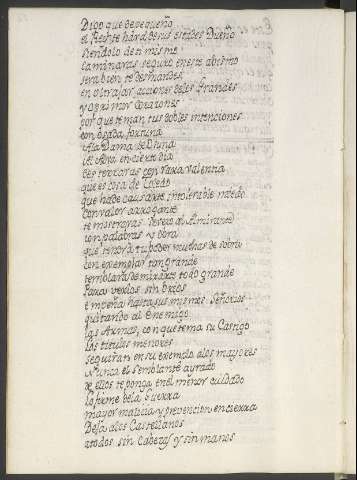 Digo que de pequeño
el Rey te hará de sus estados Dueño
siendolo de ti mismo
caminaras seguro en este abismo
sera bien te desmandes
en ultrajar acciones de los grandes
y oprimir corazones
por que teman tus dobles intenciones
con osada fortuna
a la Dama de
el otro en cierto dia
des terraras con rara valentia
que es cosa de Toledo
que ha de causarte intolerable miedo
Con valor arrogante
te mostraras severo al Almirante
con palabras y obra
que tendra tu poder muchas de sobra
con exemplar tan grande
temblara de mirarte todo grande
Para verlos sin brios
empeña hasta sus mismos Señorios
quitando al Enemigo
las Armas, con que tema su Castigo
Los titulos menores
seguiran en su exemplo a los mayores
Nunca el semblante ayrado
de ellos te ponga en el menor cuidado
lo firme de la Guerra
mayor malicia y prevencion encierra
Dexa a los Castellanos
a todos sin Cabezas y sin manos